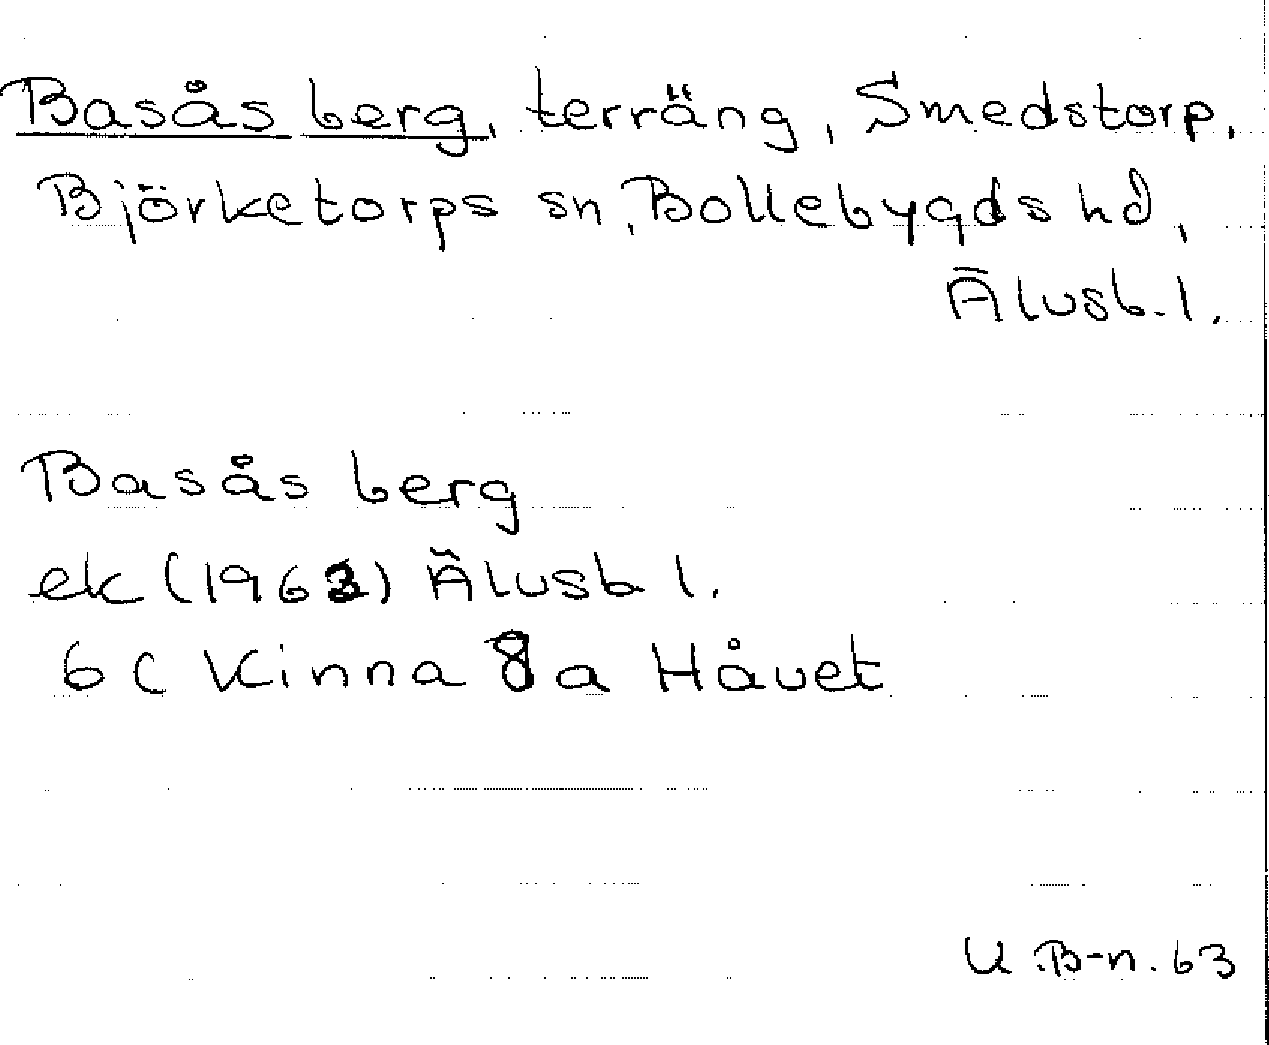 Basås berg, terräng, Smedstorp,
Björketorps sn, Bollebygds hd,
Älvsb. l.
Basås berg
ek (1963) Älvsb l.
6 C Kinna 8 a Håvet
U B-n. 63